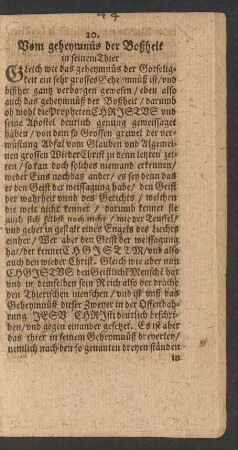 20.
Vom geheymnüs der Boßheit
in seinem Thier
GLeich wie das geheymnüs der Gotselig-
keit ein sehr grosses Geheymnüß ist/ und
bißher gantz verborgen gewesen/ eben also
auch das geheymnüß der Boßheit/ darumb
ob wohl die Propheten CHRISTVS und
seine Apostel deutlich genung geweissaget
haben/ von dem so Grossen grewel der ver-
wüstung Abfal vom Glauben und Allgemei-
nen grossen Wieder Christ in denen letzten zey-
ten/ so kan doch solches niemand erkennen/
weder Eins noch das ander/ es sey denn das
er den Geist der weissagung habe/ den Geist
der wahrheit unnd des Gerichts/ welchen
die welt nicht kenner/ darumb kennet sie
auch sich selbst noch mich/ wie der Teuffel/
umb gehet in gestalt eines Engels des Liechts
einher/ Wer aber den Geist der weissagung
hat/ der kennet CHRISTUM/ und also
auch den wieder Christ. Gleich wie aber nun
CHRISTVS den Geistlich Mensche hat
und in demselben sein Reich also der drache
den Thierischen menschen/ und ist uns das
Geheymnüß dieser Zweyer in der Offenbah-
rung JESV CHRIsti deutlich beschri-
ben/ und gegen einander gesetzet. Es ist aber
das thier in seinem Geheymnüß dreyerley/
nemlich nach den so genanten dreyen ständen
in